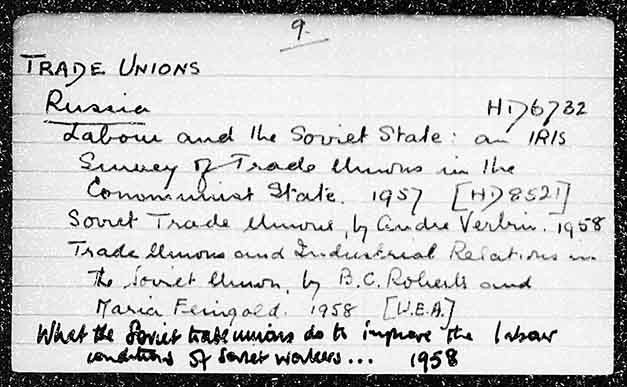 9.
TRADE UNIONS
Russia HD6732
Labour and the Soviet State: an IRIS
Survey of Trade Unions in the
Communist State. 1957 [HD8521]
Soviet Trade Unions, by Andre Verbin. 1958
Trade Unions and Industrial Relations in
the Soviet Union, by B.C. Roberts and
Maria Feingold. 1958 [W.E.A.]
What the Soviet trade unions do to improve the labour
conditions of Soviet workers... 1958